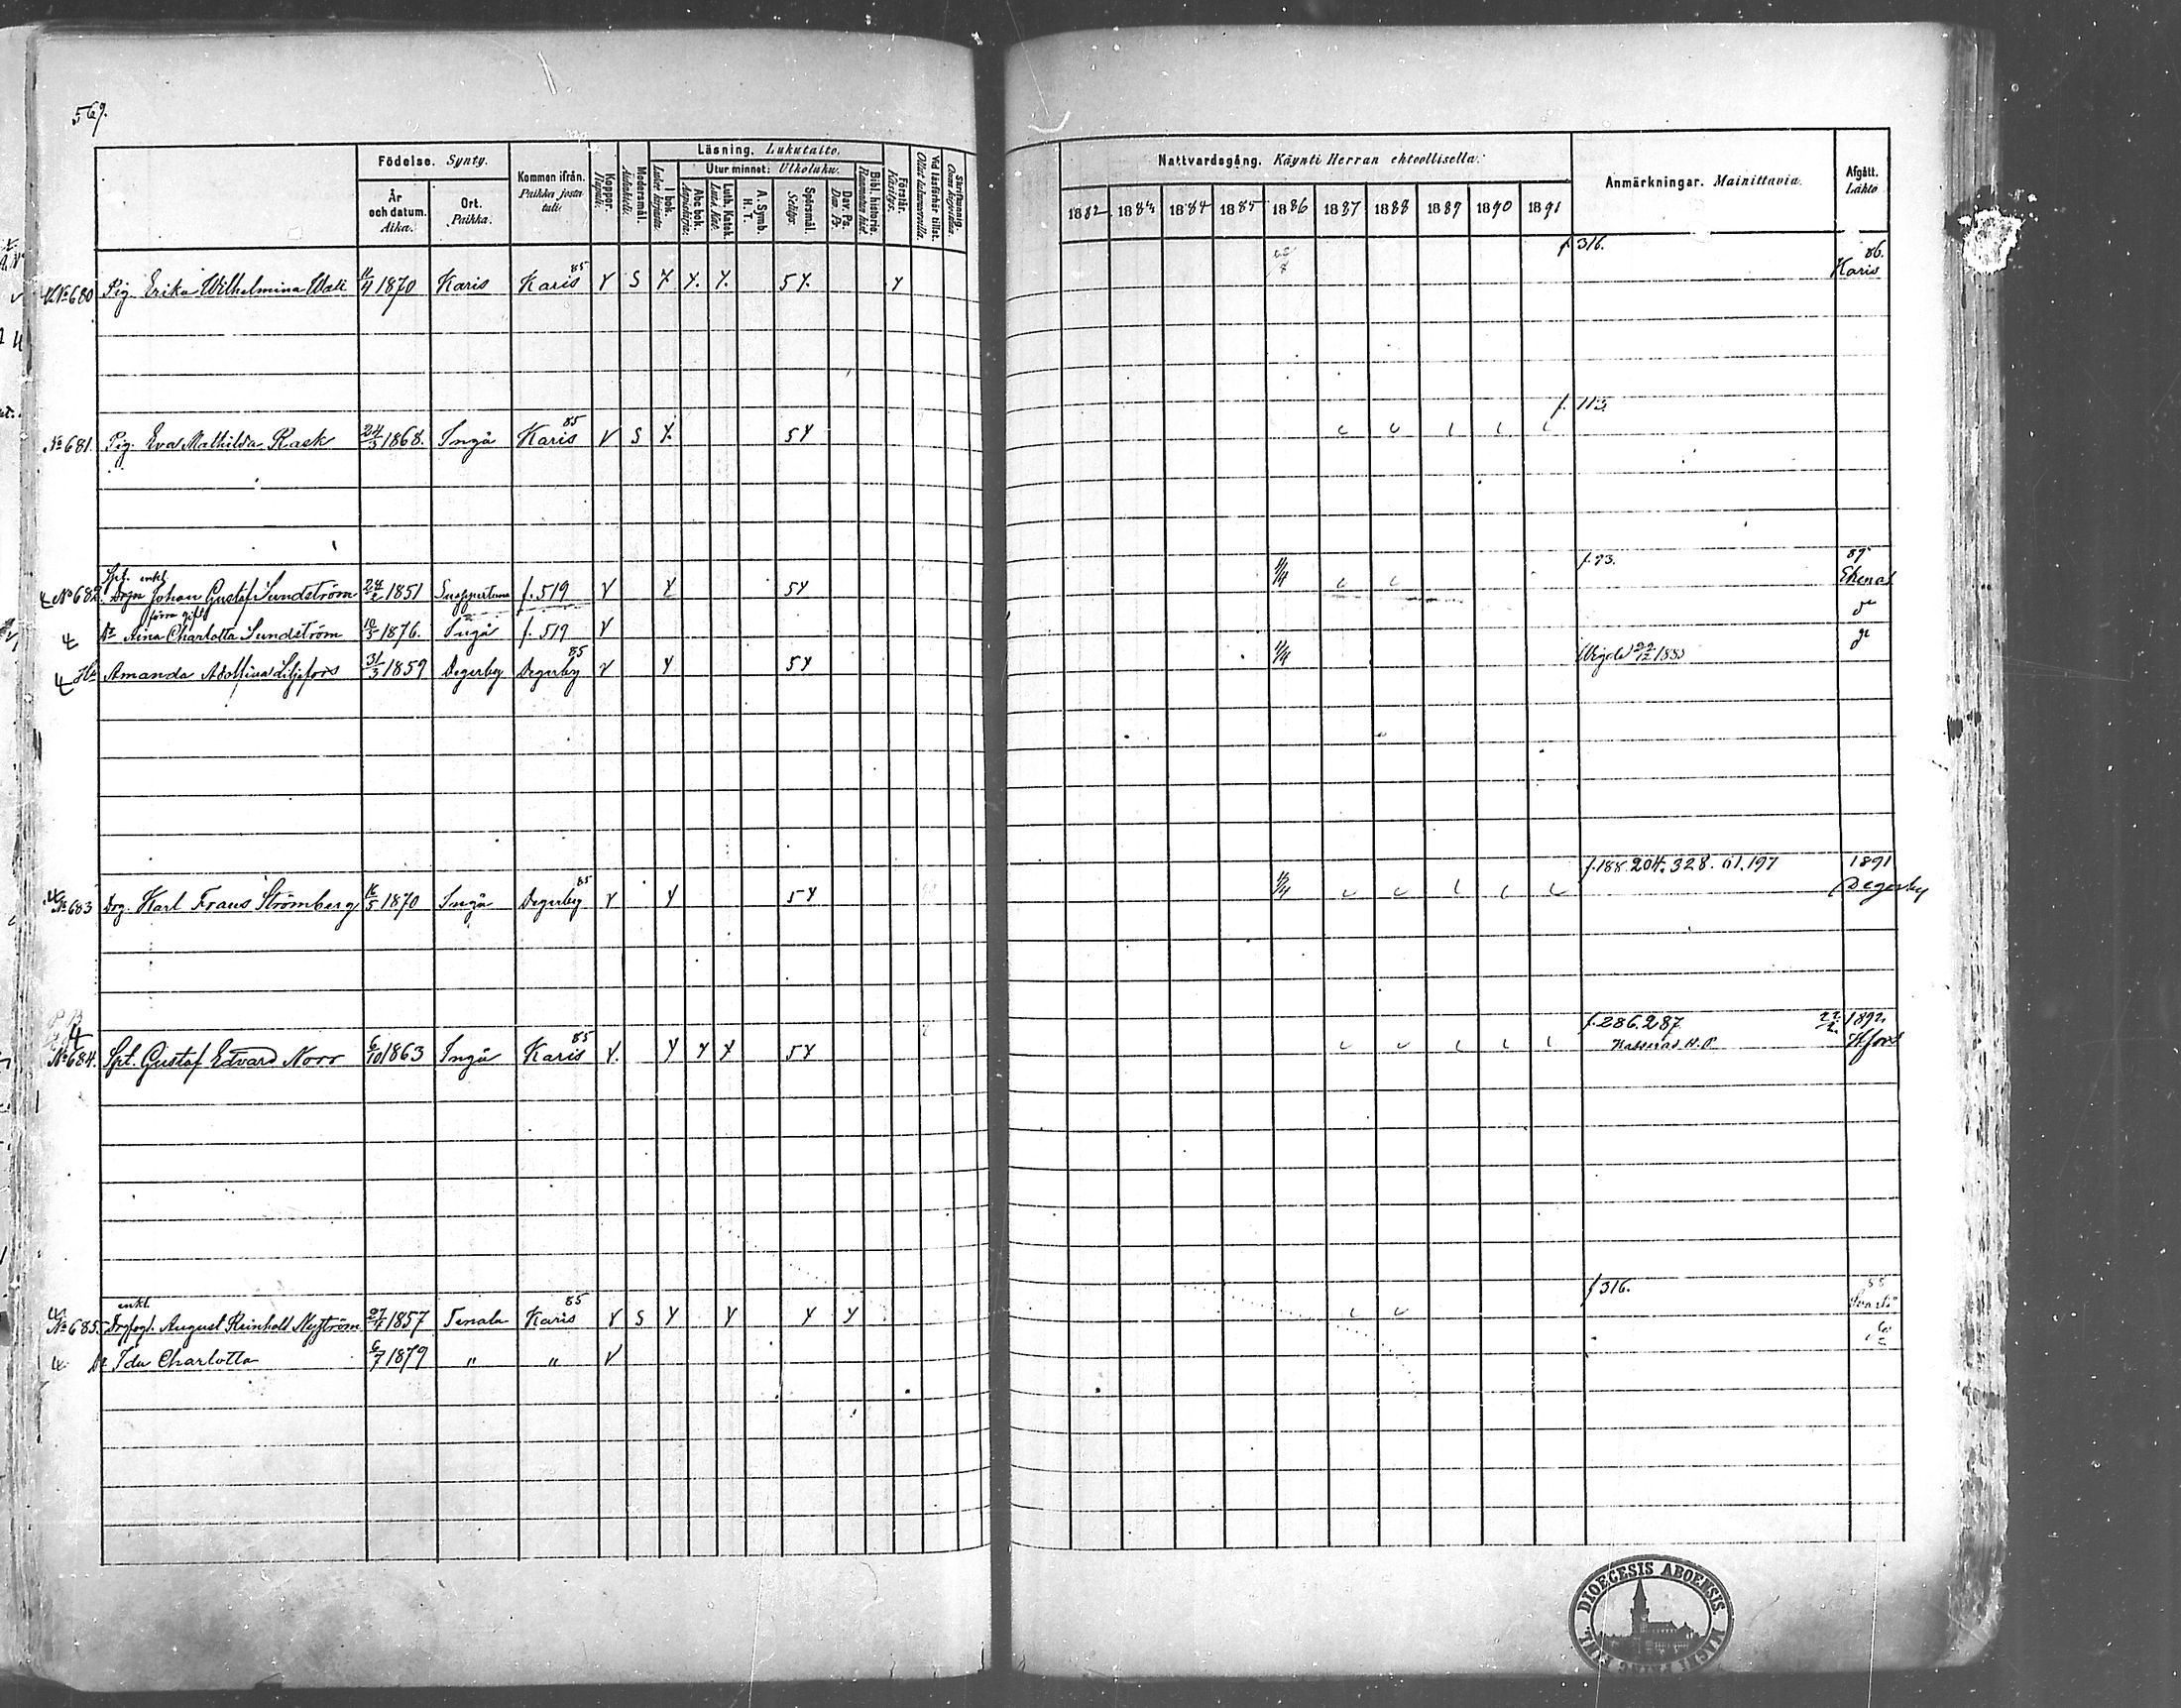 569.
Födelse. Synty.
År och datum. Aika.
Ort. Paikka.
Kommen ifrån. Paikka josta tuli.
Koppor. Rupuli.
Modersmål. Äidinkieli.
Läsning. Lukutaito.
I bok. Luku kirjasta.
Utur minnet: Ulkoluku.
Abc bok. Aapiskirja.
Luth. Katek. Lut. Kat.
A. Symb. H. T.
Spörsmål. Selitys.
Dav. Ps. Dav. Ps.
Bibl. historia. Raamatun hist.
Förstår. Käsitys.
Vid läsförhör tillst. Ollut lukuvuorolla.
Skriftkunnig. Osaa kirjoittaa.
Nattvardsgång. Käynti Herran ehtoollisella.
1882 1883 1884 1885 1886 1887 1888 1889 1890 1891
Anmärkningar. Mainittavia.
Afgått. Lähtö
No 680 Pig. Erika Wilhelmina Wall 4/4 1870 Karis Karis 85 V S Y. Y. Y. 5 Y. Y f. 316. 86. Karis
No 681. Pig. Eva Mathilda Rask 24/3 1868. Ingå Karis 85 V S Y. 5 Y f. 113.
Spt. enkl.
No 682. Drgn Johan Gustaf Sundström 1851 Snappertuna f. 519 V Y 5 Y f. 73. 89 Ekenäs
Dr Aina Charlotta Sundström 10/3 1876. Ingå f. 519 V
Hu Amanda Adolfina Liljefors 31/3 1859 Degerby Degerby 85 V Y 5 Y Wigde 1885
No 683 Drg. Karl Frans Strömberg 1870 Ingå Degerby 85 V Y 5 Y f. 188. 204. 328. 61. 197 1891 Degerby
No 684. Spt. Gustaf Edvard Noor 6/10 1863 Ingå Karis 85 Y. Y Y Y 5 Y f. 286. 287 1892. Hfors
enkl.
No 685. August Reinhold Nyström 27/1 1857 Tenala Karis 85 V S Y Y Y Y f 316. Svartå
4 Dr Ida Charlotta 6/7 1879 " " V
DIOECESIS ABOENSIS